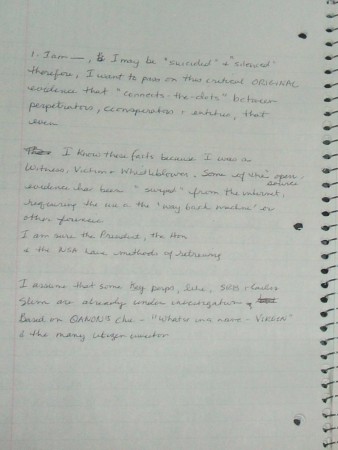 1. I am —, & I may be "suicided" + "silenced"
therefore, I want to pass on this critical ORIGINAL
evidence that "connects-the-dots" between
perpetrators, coconspirators + entities, that
even
I know these facts because I was a
Witness, Victim + Whistleblower. Some of the open source
evidence has been "scrubbed" from the internet,
requiring the use of the 'way back machine' or
other forensic
I am sure the President, the Hon
& the NSA have methods of retrieving
I assume that some key perps, like, SRB + Carlos
Slim are already under investigation,
Based on QANON'S clue - "What's in a name - VIRGIN"
& the many